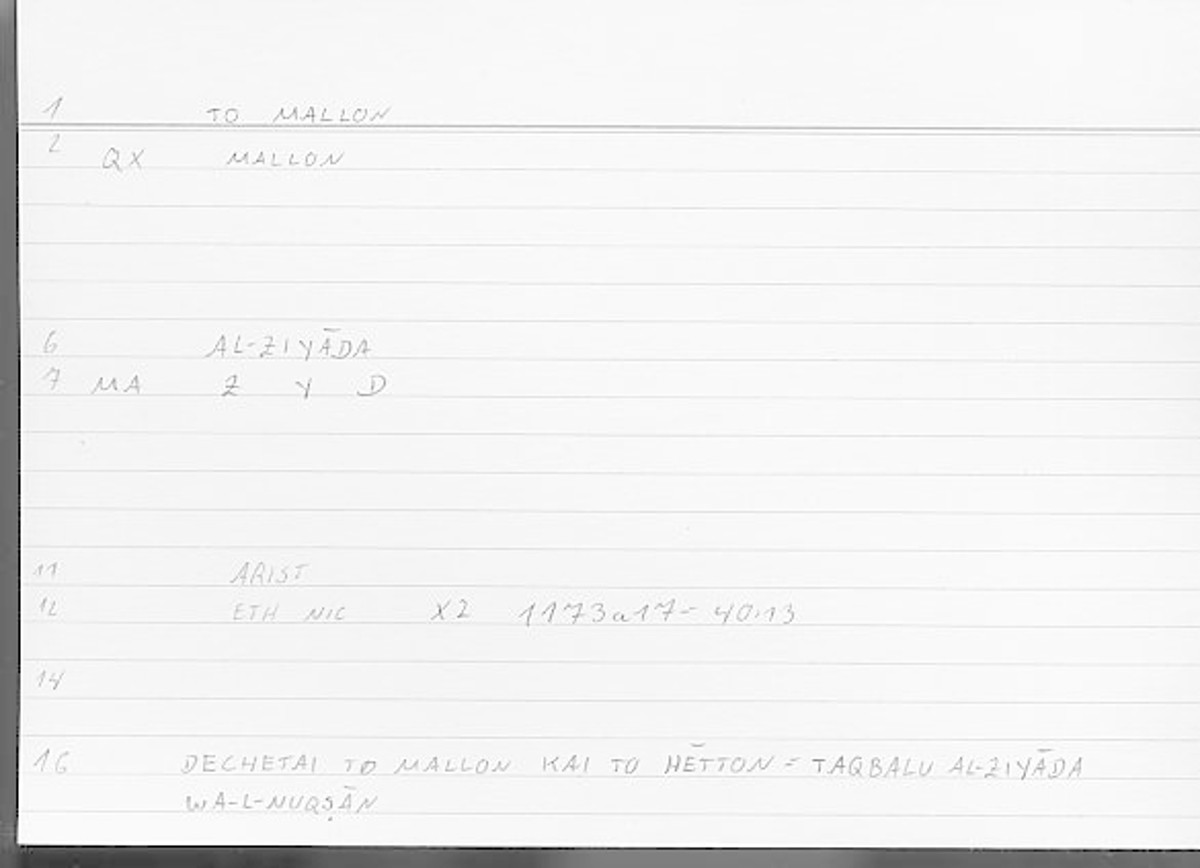 1 TO MALLON
2 QX MALLON
6 AL-ZIYĀDA
7 MA Z Y D
11 ARIST
12 ETH NIC X2 1173a17 - 40.13
14
16 DECHETAI TO MALLON KAI TO HĒTTON = TAQBALU AL-ZIYĀDA
WA-L-NUQṢĀN